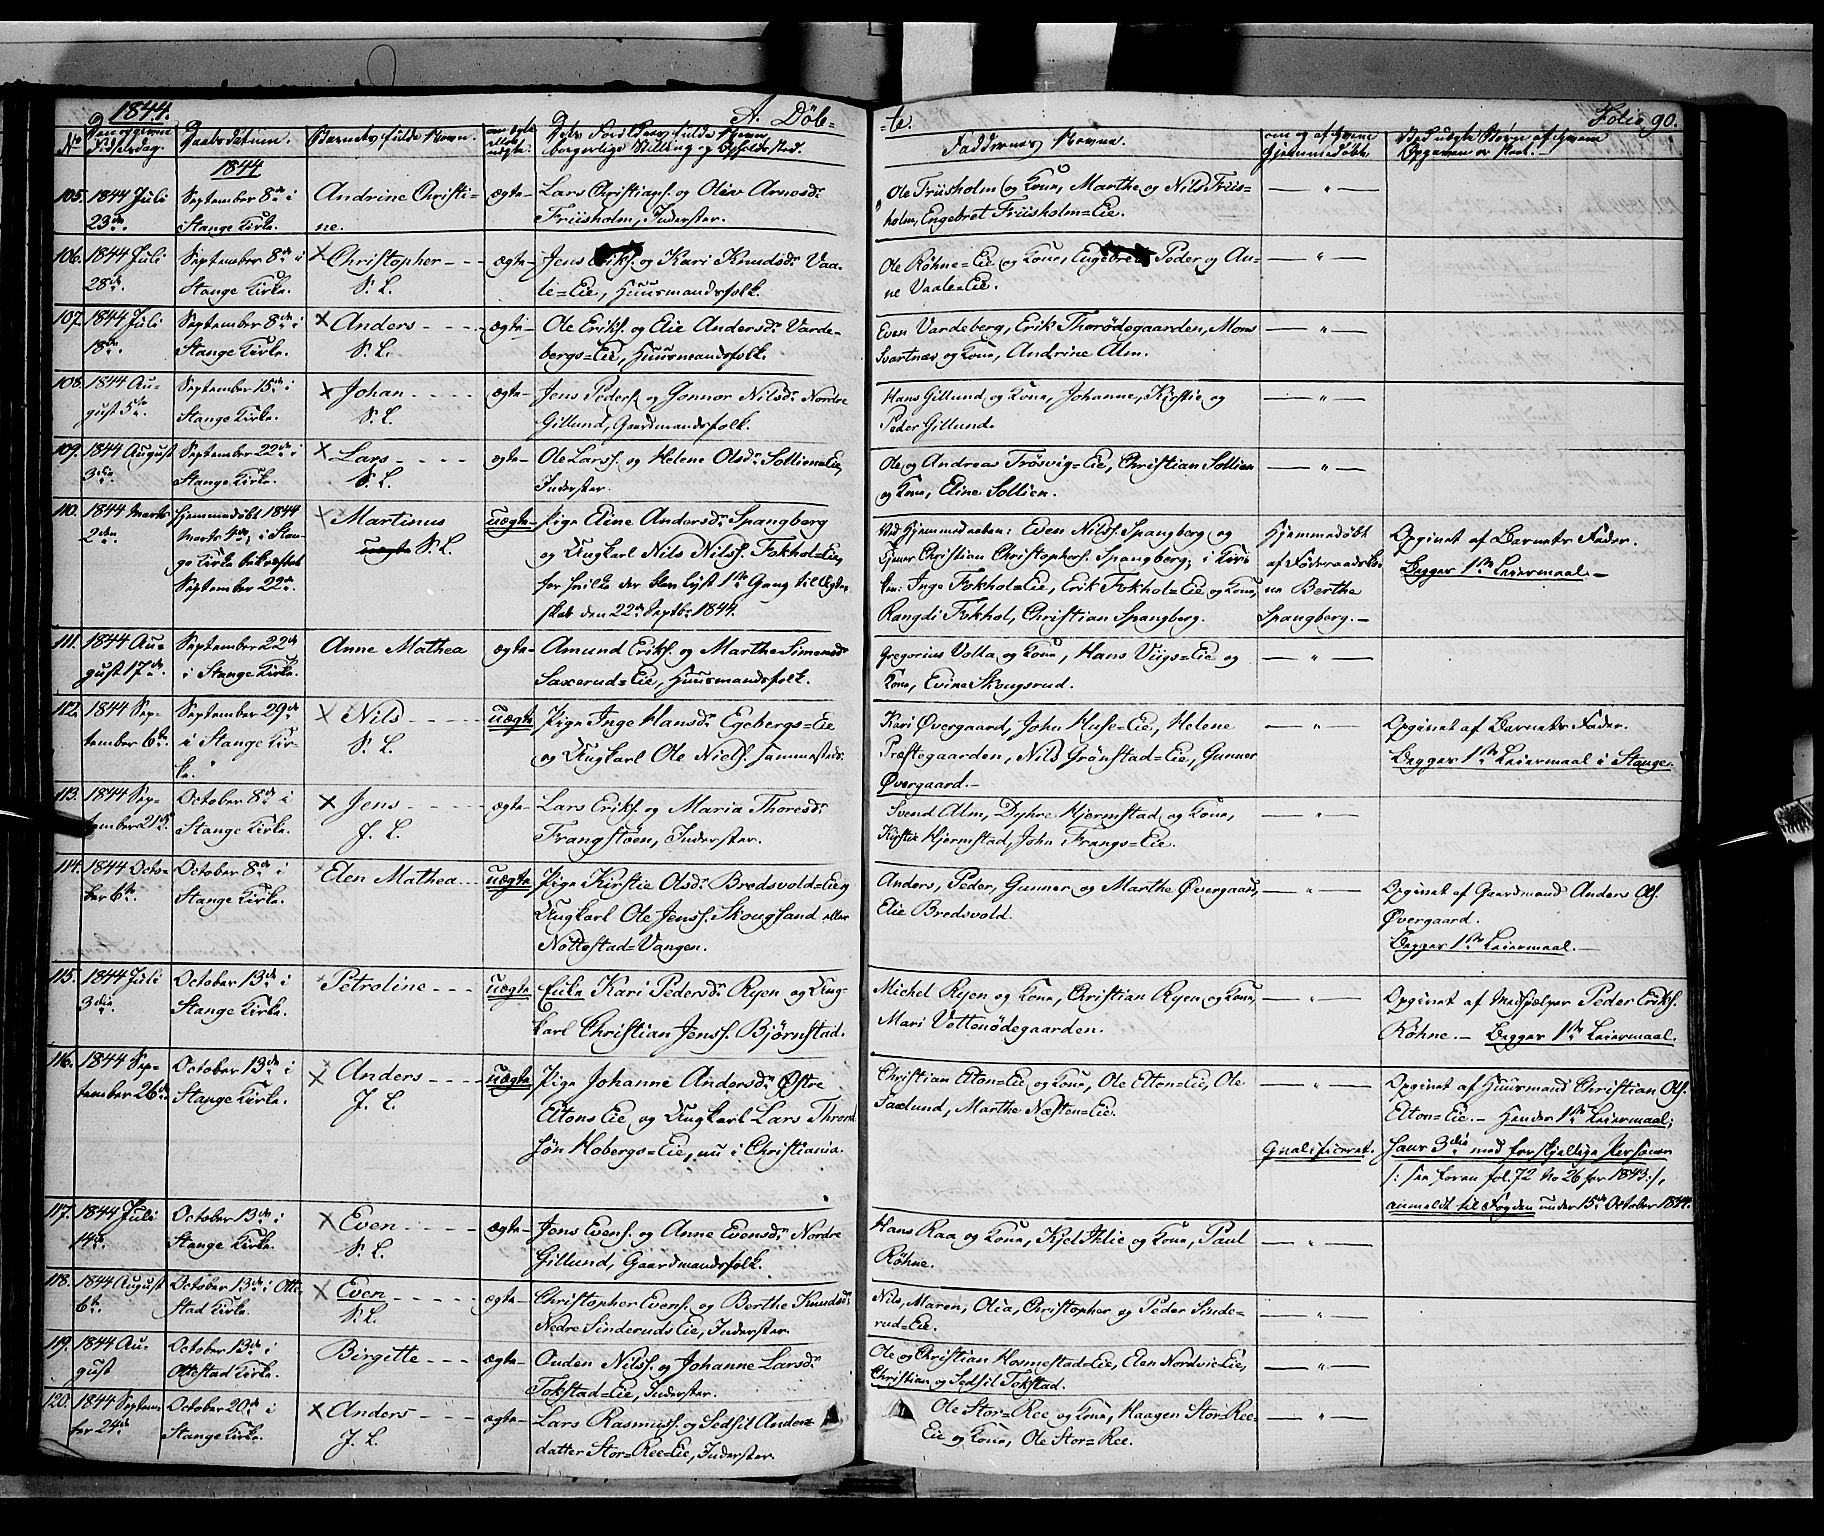 1844.
A. Døb=
=te.
Folio 90.
No
Den opgivne Fødselsdag.
Daabsdatum.
Barnets fulde Navn.
om ægte eller uægte.
Dets Forældres fulde Navn, borgerlige Stilling og Opholdssted.
Faddernes Navne.
om og af hvem Hjemmedøbt.
Ved uægte Børn af hvem Opgaven er skeet.
1844
105. 1844 Juli 23de.
September 8de i Stange Kirke.
Andrine Christi=
ne.
ægte
Lars Christians. og Oliv Arnesdr.
Friisholm, Inderster.
Ole Friisholm og Kone, Marthe og Nils Friis=
holm, Engebret Friisholm=Eie.
— " —
106. 1844 Juli 28de.
September 8de i Stange Kirke.
× Christopher
S. L.
ægte
Jens Eriks. og Kari Knudsdr. Vaa=
le=Eie, Huusmandsfolk.
Ole Røhne=Eie og Kone, Engebret, Peder og An=
ne Vaale=Eie.
— " —
107. 1844 Juli 18de.
September 8de i Stange Kirke.
× Anders
S. L.
ægte
Ole Eriks. og Elie Andersdr. Varde=
bergs=Eie, Huusmandsfolk.
Even Vardeberg, Erik Thorødegaarden, Mons
Svartnæs og Kone, Andrine Alm.
— " —
108. 1844 Au=
gust 5te.
September 15de i Stange Kirke.
× Johan
S. L.
ægte
Jens Peders. og Gonnor Nilsdr. Nordre
Gillund, Gaardmandsfolk.
Hans Gillund og Kone, Johanne, Kirstie og
Peder Gillund.
— " —
109. 1844 August 3die.
September 22de i Stange Kirke.
× Lars
S. L.
ægte
Ole Larss. og Helene Olsdr. Sollien=Eie,
Inderster.
Ole og Andreas Frøsvig=Eie, Christian Sollien
og Kone, Eline Sollien.
— " —
110. 1844 Marts 2den
Hjemmedøbt 1844 Marts 4de, i Stan=
ge Kirke bekræftet September 22de.
× Martinus
uægte S. L.
uægte
Pige Eline Andersdr. Spangberg
og Ungkarl Nils Nilss. Fokhol=Eie,
for hvilke der blev lyst 1ste Gang til Ægte=
skab den 22de Septbr. 1844.
Ved Hjemmedaaben: Even Nilss. Spangberg og
Christian Christophers. Spangberg; i Kir=
ken: Inge Fokhol=Eie, Erik Fokhol=Eie og Kone,
Rangdi Fokhol, Christian Spangberg.
Hjemmedøbt
af Føderaadsko=
ne Berthe
Spangberg.
Opgivet af Barnets Fader.
Begges 1ste Leiermaal.
111. 1844 Au=
gust 17de.
September 22de i Stange Kirke.
Anne Mathea
ægte
Amund Eriks. og Marthe Simensdr.
Saxerud=Eie, Huusmandsfolk.
Gregorius Volla og Kone, Hans Viigs=Eie og
Kone, Evine Skougsrud.
— " —
112. 1844 Sep=
tember 6te.
September 29de i Stange Kir=
ke.
× Nils
S. L.
uægte
Pige Inge Hansdr. Egebergs=Eie
og Ungkarl Ole Niels. sammesteds.
Kari Øvergaard, John Huse=Eie, Helene
Præstegaarden, Nils Grønstad=Eie, Gunner
Øvergaard.
— " —
Opgivet af Barnets Fader.
Begges 1ste Leiermaal i Stange.
113. 1844 Sep=
tember 21de.
October 8de i Stange Kirke.
× Jens
J. L.
ægte
Lars Eriks. og Maria Thoresdr.
Frangstøen, Inderster.
Svend Alm, Dyhre Hjermstad og Kone,
Kirstie Hjermstad, John Frangs=Eie.
— " —
114. 1844 Octo=
ber 6te.
October 8de i Stange Kirke.
Elen Mathea
uægte
Pige Kirstie Olsdr. Bredsvold=Eie,
Ungkarl Ole Jenss. Skougland eller
Nøttestad=Vangen.
Anders, Peder, Gunner og Marthe Øvergaard,
Elie Bredsvold.
— " —
Opgivet af Gaardmand Anders Ols.
Øvergaard.
Begges 1ste Leiermaal.
115. 1844 Juli 3die.
October 13de i Stange Kirke.
Petroline
uægte
Enke Kari Pedersdr. Ryen og Ung=
karl Christian Jenss. Bjørnstad.
Michel Ryen og Kone, Christian Ryen og Kone,
Mari Vettenødegaarden.
— " —
Opgivet af Medhjelper Peder Eriks.
Røhne. — Begges 1ste Leiermaal.
116. 1844 Sep=
tember 26de
October 13de i Stange Kirke.
× Anders
J. L.
uægte
Pige Johanne Andersdr. Østre
Eltons Eie og Ungkarl Lars Thrond=
søn Hobergs=Eie, nu i Christiania.
Christian Elton=Eie og Kone, Ole Elton=Eie, Ole
Saxlund, Marthe Næsten=Eie.
— " —
Qualificeret.
Opgivet af Huusmand Christian Ols.
Elton=Eie. — Hendes 1ste Leiermaal;
hans 3die med forskjellige Personer
/: see foran fol. 72 No 26 for 1843 :/,
anmeldt til Fogden under 15de October 1844.
117. 1844 Juli 14de.
October 13de i Stange Kirke.
× Even
S. L.
ægte
Jens Evens. og Anne Evensdr. Nordre
Gillund, Gaardmandsfolk.
Hans Raa og Kone, Kjel Ihlie og Kone, Paul
Røhne.
— " —
118. 1844 August 6te
October 13de i Otte=
stad Kirke.
× Even
S. L.
ægte
Christopher Evens. og Berthe Knudsdr.
Nedre Sinderuds Eie, Inderster.
Nils, Maren, Olia, Christopher og Peder Sinde=
rud=Eie.
— " —
119. 1844 Au=
gust
October 13de i Ottestad Kirke.
Birgitte
ægte
Ouden Nilss. og Johanne Larsdr.
Tokstad=Eie, Inderster.
Ole og Christian Hommestad=Eie, Elen Nordvie=Eie,
Christian og Sedsil Tokstad.
— " —
120. 1844 Septem=
ber 24de
October 20de i Stange Kirke.
× Anders
J. L.
ægte
Lars Rasmuss. og Sedsil Anders=
datter Stor=Ree=Eie, Inderster.
Ole Stor=Ree og Kone, Haagen Stor=Ree=
Eie og Kone, Ole Stor=Ree.
— " —